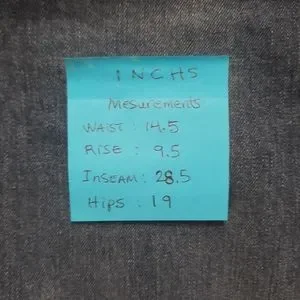 INCHS
Mesurements
WAIST : 14.5
RISE : 9.5
INSEAM : 28.5
Hips : 19